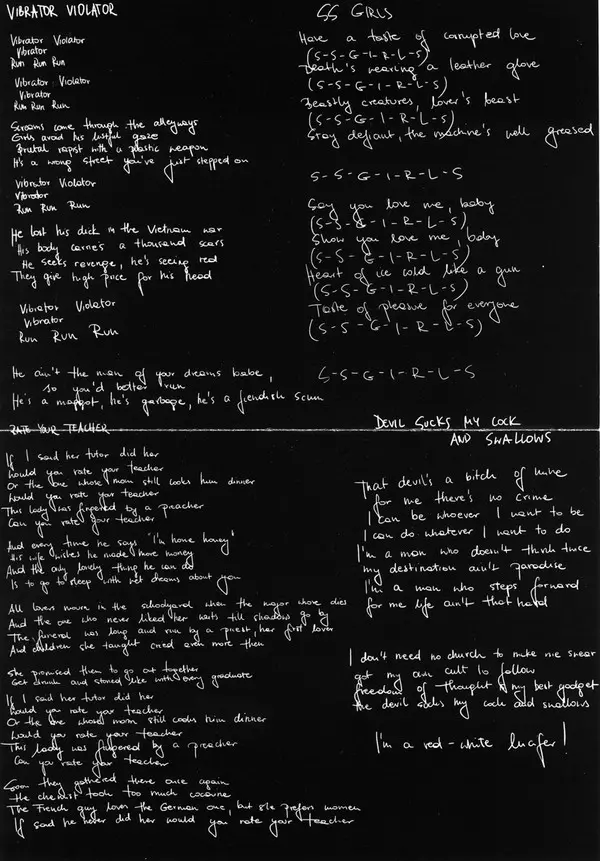 VIBRATOR VIOLATOR
Vibrator Violator
Vibrator
Run Run Run
Vibrator Violator
Vibrator
Run Run Run
Screams come through the alleyways
Girls avoid his lustful gaze
Brutal rapist with a plastic weapon
It's a wrong street you've just stepped on
Vibrator Violator
Vibrator
Run Run Run
He lost his dick in the Vietnam war
His body carries a thousand scars
He seeks revenge, he's seeing red
They give high price for his head
Vibrator Violator
Vibrator
Run Run Run
He ain't the man of your dreams babe,
so you'd better run
He's a maggot, he's garbage, he's a fiendish scum
SS GIRLS
Have a taste of corrupted love
(S-S-G-I-R-L-S)
Death's wearing a leather glove
(S-S-G-I-R-L-S)
Beastly creatures, lover's beast
(S-S-G-I-R-L-S)
Stay defiant, the machine's well greased
S-S-G-I-R-L-S
Say you love me, baby
(S-S-G-I-R-L-S)
Show you love me, baby
(S-S-G-I-R-L-S)
Heart of ice cold like a gun
(S-S-G-I-R-L-S)
Taste of pleasure for everyone
(S-S-G-I-R-L-S)
S-S-G-I-R-L-S
RATE YOUR TEACHER
If I said her tutor did her
Would you rate your teacher
Or the one whose mom still cooks him dinner
Would you rate your teacher
This lady was fingered by a preacher
Can you rate your teacher
And every time he says "I'm home honey"
His wife wishes he made more money
And the only lovely thing he can do
Is to go to sleep with wet dreams about you
All lovers mourn in the schoolyard when the major whore dies
And the one who never liked her waits till shadows go by
The funeral was long and run by a priest, her first lover
And children she taught cried even more then
She promised them to go out together
Get drunk and stoned like with every graduate
If I said her tutor did her
Would you rate your teacher
Or the one whose mom still cooks him dinner
Would you rate your teacher
This lady was fingered by a preacher
Can you rate your teacher
Soon they gathered there once again
the chemist took too much cocaine
The French guy loves the German one, but she prefers women
If said he never did her would you rate your teacher
DEVIL SUCKS MY COCK
AND SWALLOWS
That devil's a bitch of mine
for me there's no crime
I can be whoever I want to be
I can do whatever I want to do
I'm a man who doesn't think twice
my destination ain't paradise
I'm a man who steps forward
for me life ain't that hard
I don't need no church to make me swear
got my own cult to follow
freedom of thought is my best gadget
the devil sucks my cock and swallows
I'm a red-white lucifer!